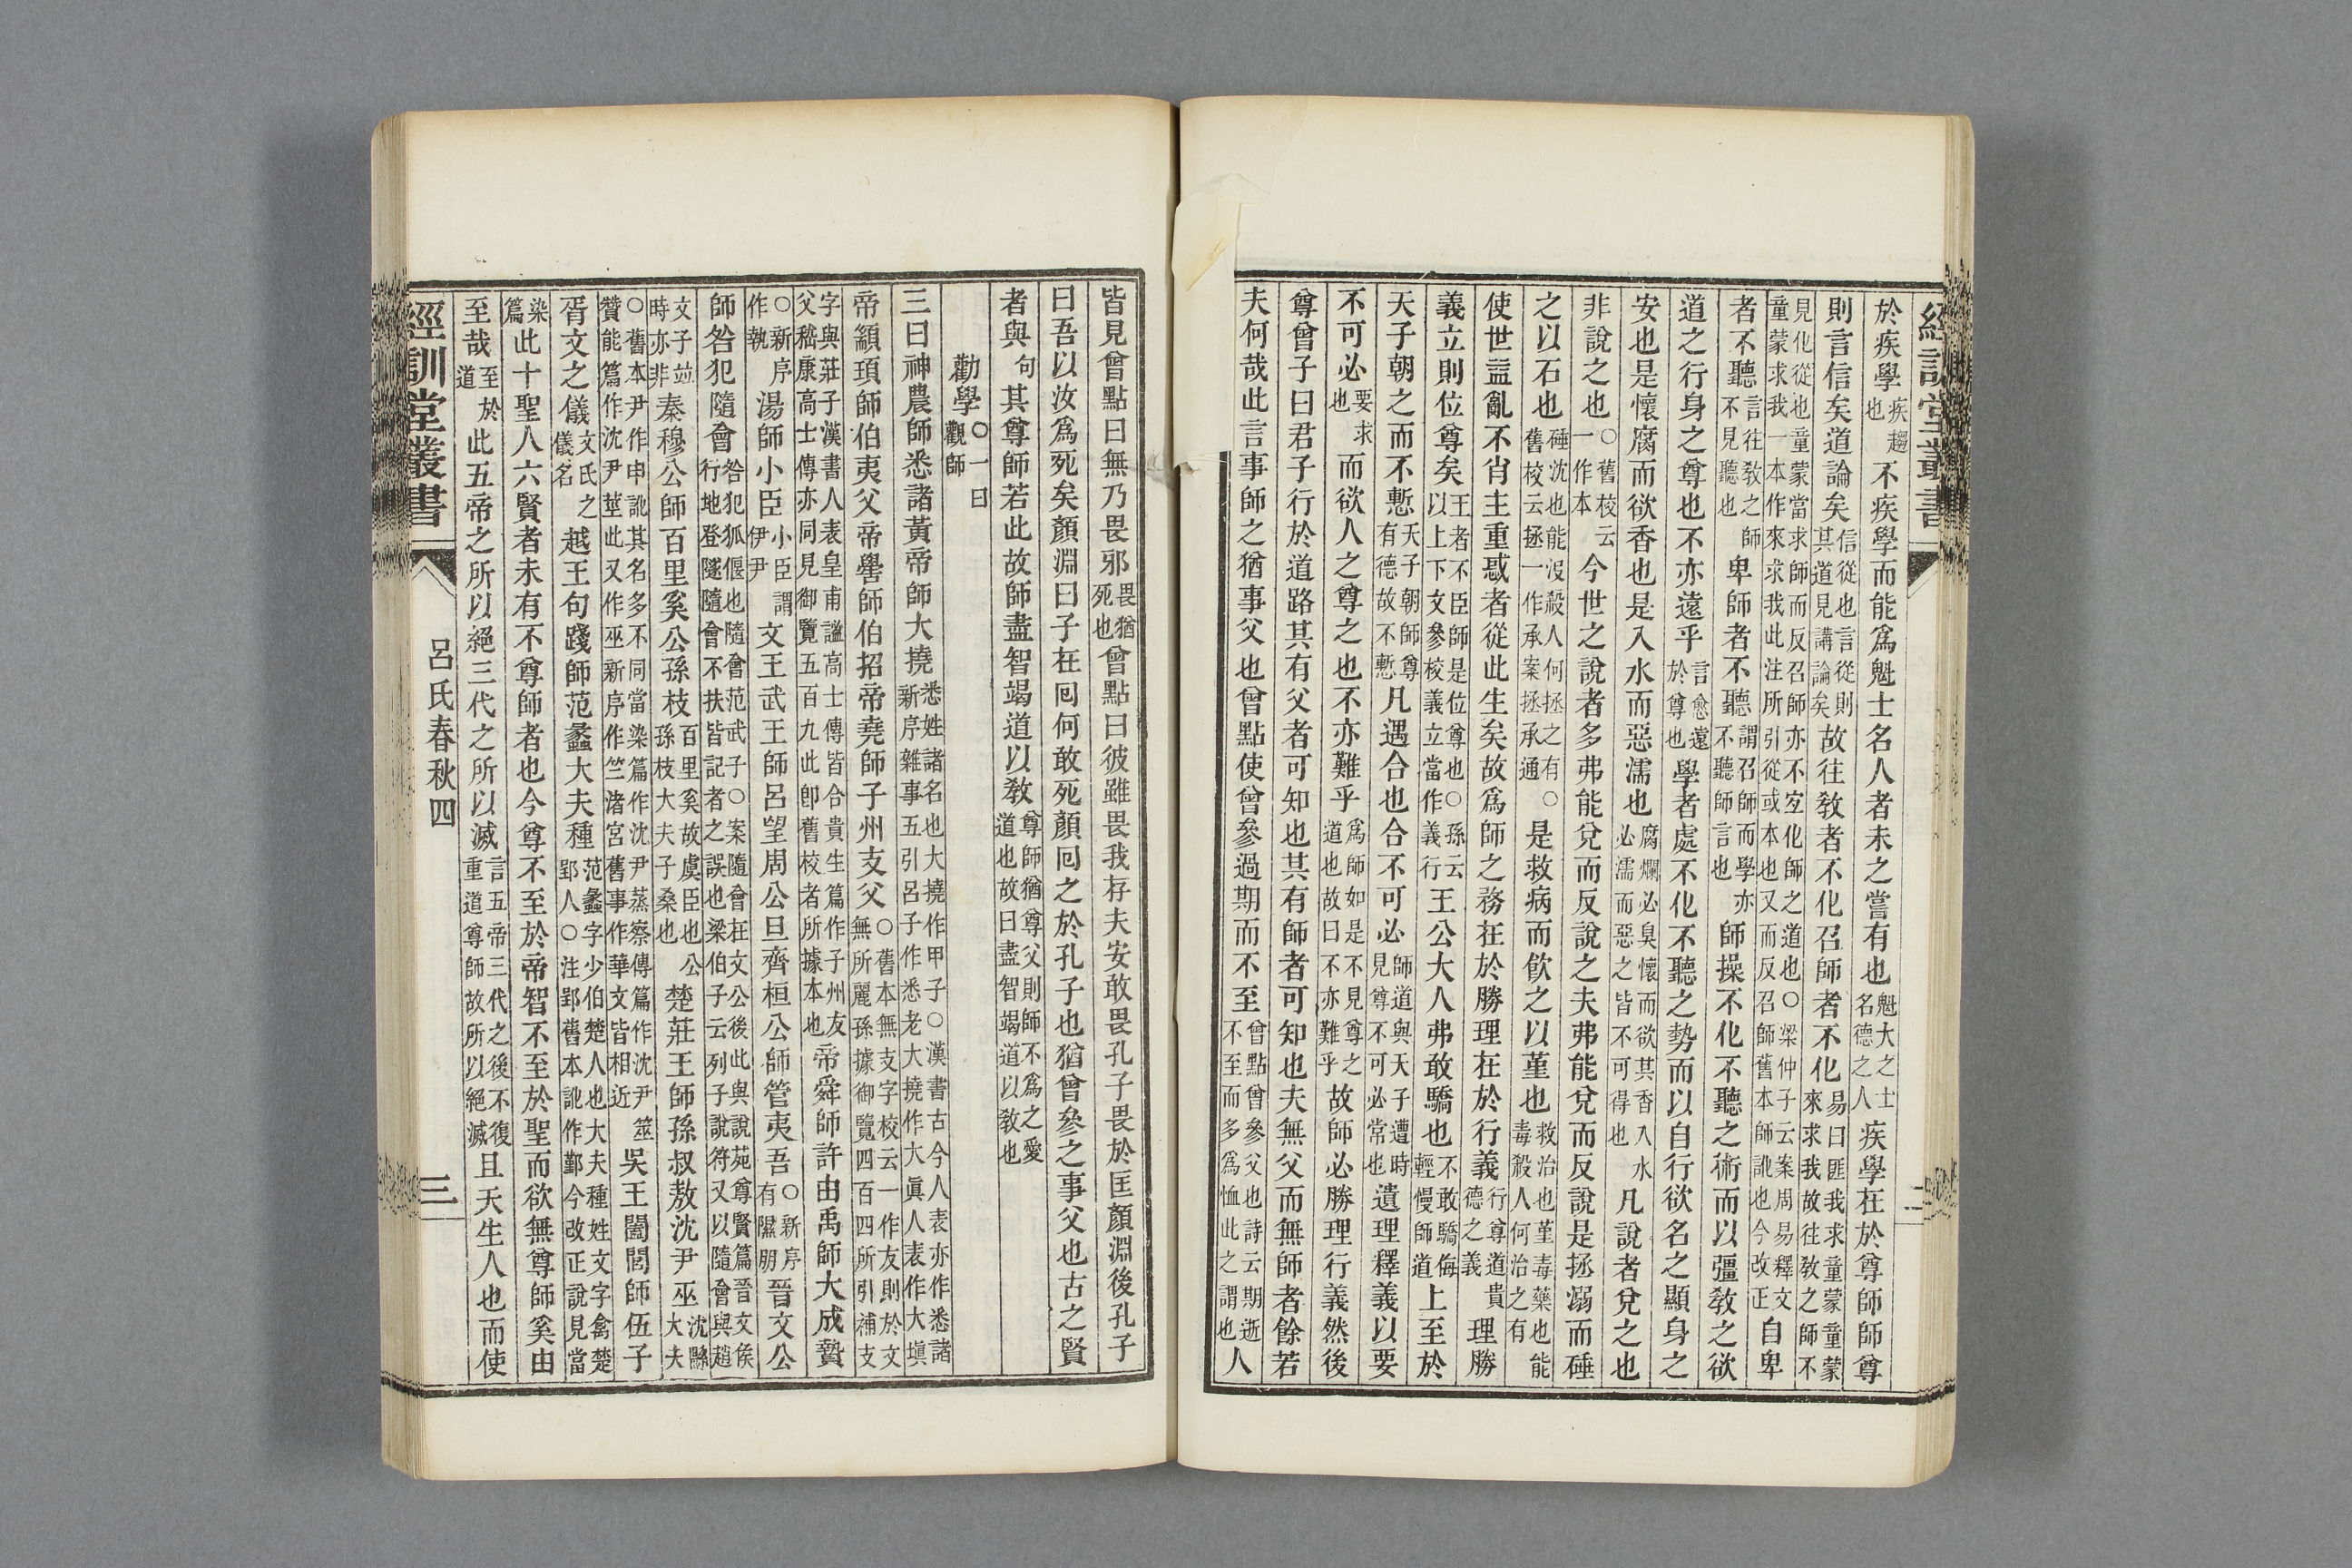 經訓堂叢書
二
於疾學疾趨也不疾學而能爲魁士名人者未之嘗有也魁大之士名德之人疾學在於尊師師尊
則言信矣道論矣信從也言從則其道見講論矣故往敎者不化召師者不化易曰匪我求童蒙童蒙來求我故往敎之師不
見化從也童蒙當求師而反召師亦不宐化師之道也○梁仲子云案周易釋文童蒙求我一本作來求我此注所引從或本也又而反召師舊本師訛也今改正自卑
者不聽言往敎之師不見聽也卑師者不聽謂召師而學亦不聽師言也師操不化不聽之術而以彊敎之欲
道之行身之尊也不亦遠乎言愈遠於尊也學者處不化不聽之勢而以自行欲名之顯身之
安也是懷腐而欲香也是入水而惡濡也腐爛必臭懷而欲其香入水必濡而惡之皆不可得也凡說者兌之也
非說之也○舊校云一作本今世之說者多弗能兌而反說之夫弗能兌而反說是拯溺而硾
之以石也硾沈也能沒殺人何拯之有○舊校云拯一作承案拯承通是救病而飮之以堇也救治也堇毒藥也能毒殺人何治之有
使世益亂不肖主重惑者從此生矣故爲師之務在於勝理在於行義行尊道貴德之義理勝
義立則位尊矣王者不臣師是位尊也○孫云以上下文參校義立當作義行王公大人弗敢驕也不敢驕侮輕慢師道上至於
天子朝之而不慙天子朝師尊有德故不慙凡遇合也合不可必師道與天子遭時見尊不可必常也遺理釋義以要
不可必要求也而欲人之尊之也不亦難乎爲師如是不見尊之道也故曰不亦難乎故師必勝理行義然後
尊曾子曰君子行於道路其有父者可知也其有師者可知也夫無父而無師者餘若
夫何哉此言事師之猶事父也曾點使曾參過期而不至曾點曾參父也詩云期逝不至而多爲恤此之謂也人
皆見曾點曰無乃畏邪畏猶死也曾點曰彼雖畏我存夫安敢畏孔子畏於匡顏淵後孔子
曰吾以汝爲死矣顏淵曰子在囘何敢死顏囘之於孔子也猶曾參之事父也古之賢
者與句其尊師若此故師盡智竭道以敎尊師猶尊父則師不爲之愛道也故曰盡智竭道以敎也
勸學○一曰觀師
三曰神農師悉諸黃帝師大撓悉姓諸名也大撓作甲子○漢書古今人表亦作悉諸新序雜事五引呂子作悉老大撓作大眞人表作大塡
帝顓頊師伯夷父帝嚳師伯招帝堯師子州支父○舊本無支字校云一作友則於文無所麗孫據御覽四百四所引補支
字與莊子漢書人表皇甫謐高士傳皆合貴生篇作子州友父嵇康高士傳亦同見御覽五百九此卽舊校者所據本也帝舜師許由禹師大成贄
○新序作執湯師小臣小臣謂伊尹文王武王師呂望周公旦齊桓公師管夷吾○新序有隰朋晉文公
師咎犯隨會咎犯狐偃也隨會范武子○案隨會在文公後此與說苑尊賢篇晉文侯行地登隧隨會不扶皆記者之誤也梁伯子云列子說符又以隨會與趙
文子竝時亦非秦穆公師百里奚公孫枝百里奚故虞臣也公孫枝大夫子桑也楚莊王師孫叔敖沈尹巫沈縣大夫
○舊本尹作申訛其名多不同當染篇作沈尹蒸察傳篇作沈尹筮贊能篇作沈尹莖此又作巫新序作竺渚宮舊事作華文皆相近吳王闔閭師伍子
胥文之儀文氏之儀名越王句踐師范蠡大夫種范蠡字少伯楚人也大夫種姓文字禽楚郢人○注郢舊本訛作鄞今改正說見當
染篇此十聖人六賢者未有不尊師者也今尊不至於帝智不至於聖而欲無尊師奚由
至哉至於道此五帝之所以絕三代之所以滅言五帝三代之後不復重道尊師故所以絕滅且天生人也而使
經訓堂叢書
呂氏春秋四
三